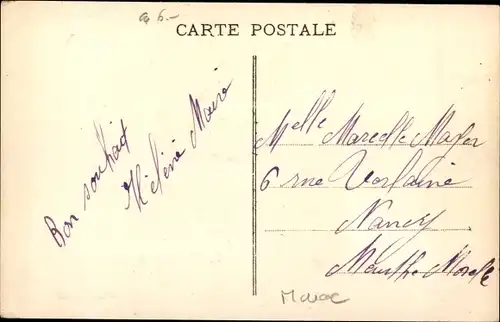 6.-
CARTE POSTALE
Bon souhait
Hélène Maire
Melle Marcelle Mayer
6 rue Verlaine
Nancy
Meurthe Moselle
Maroc